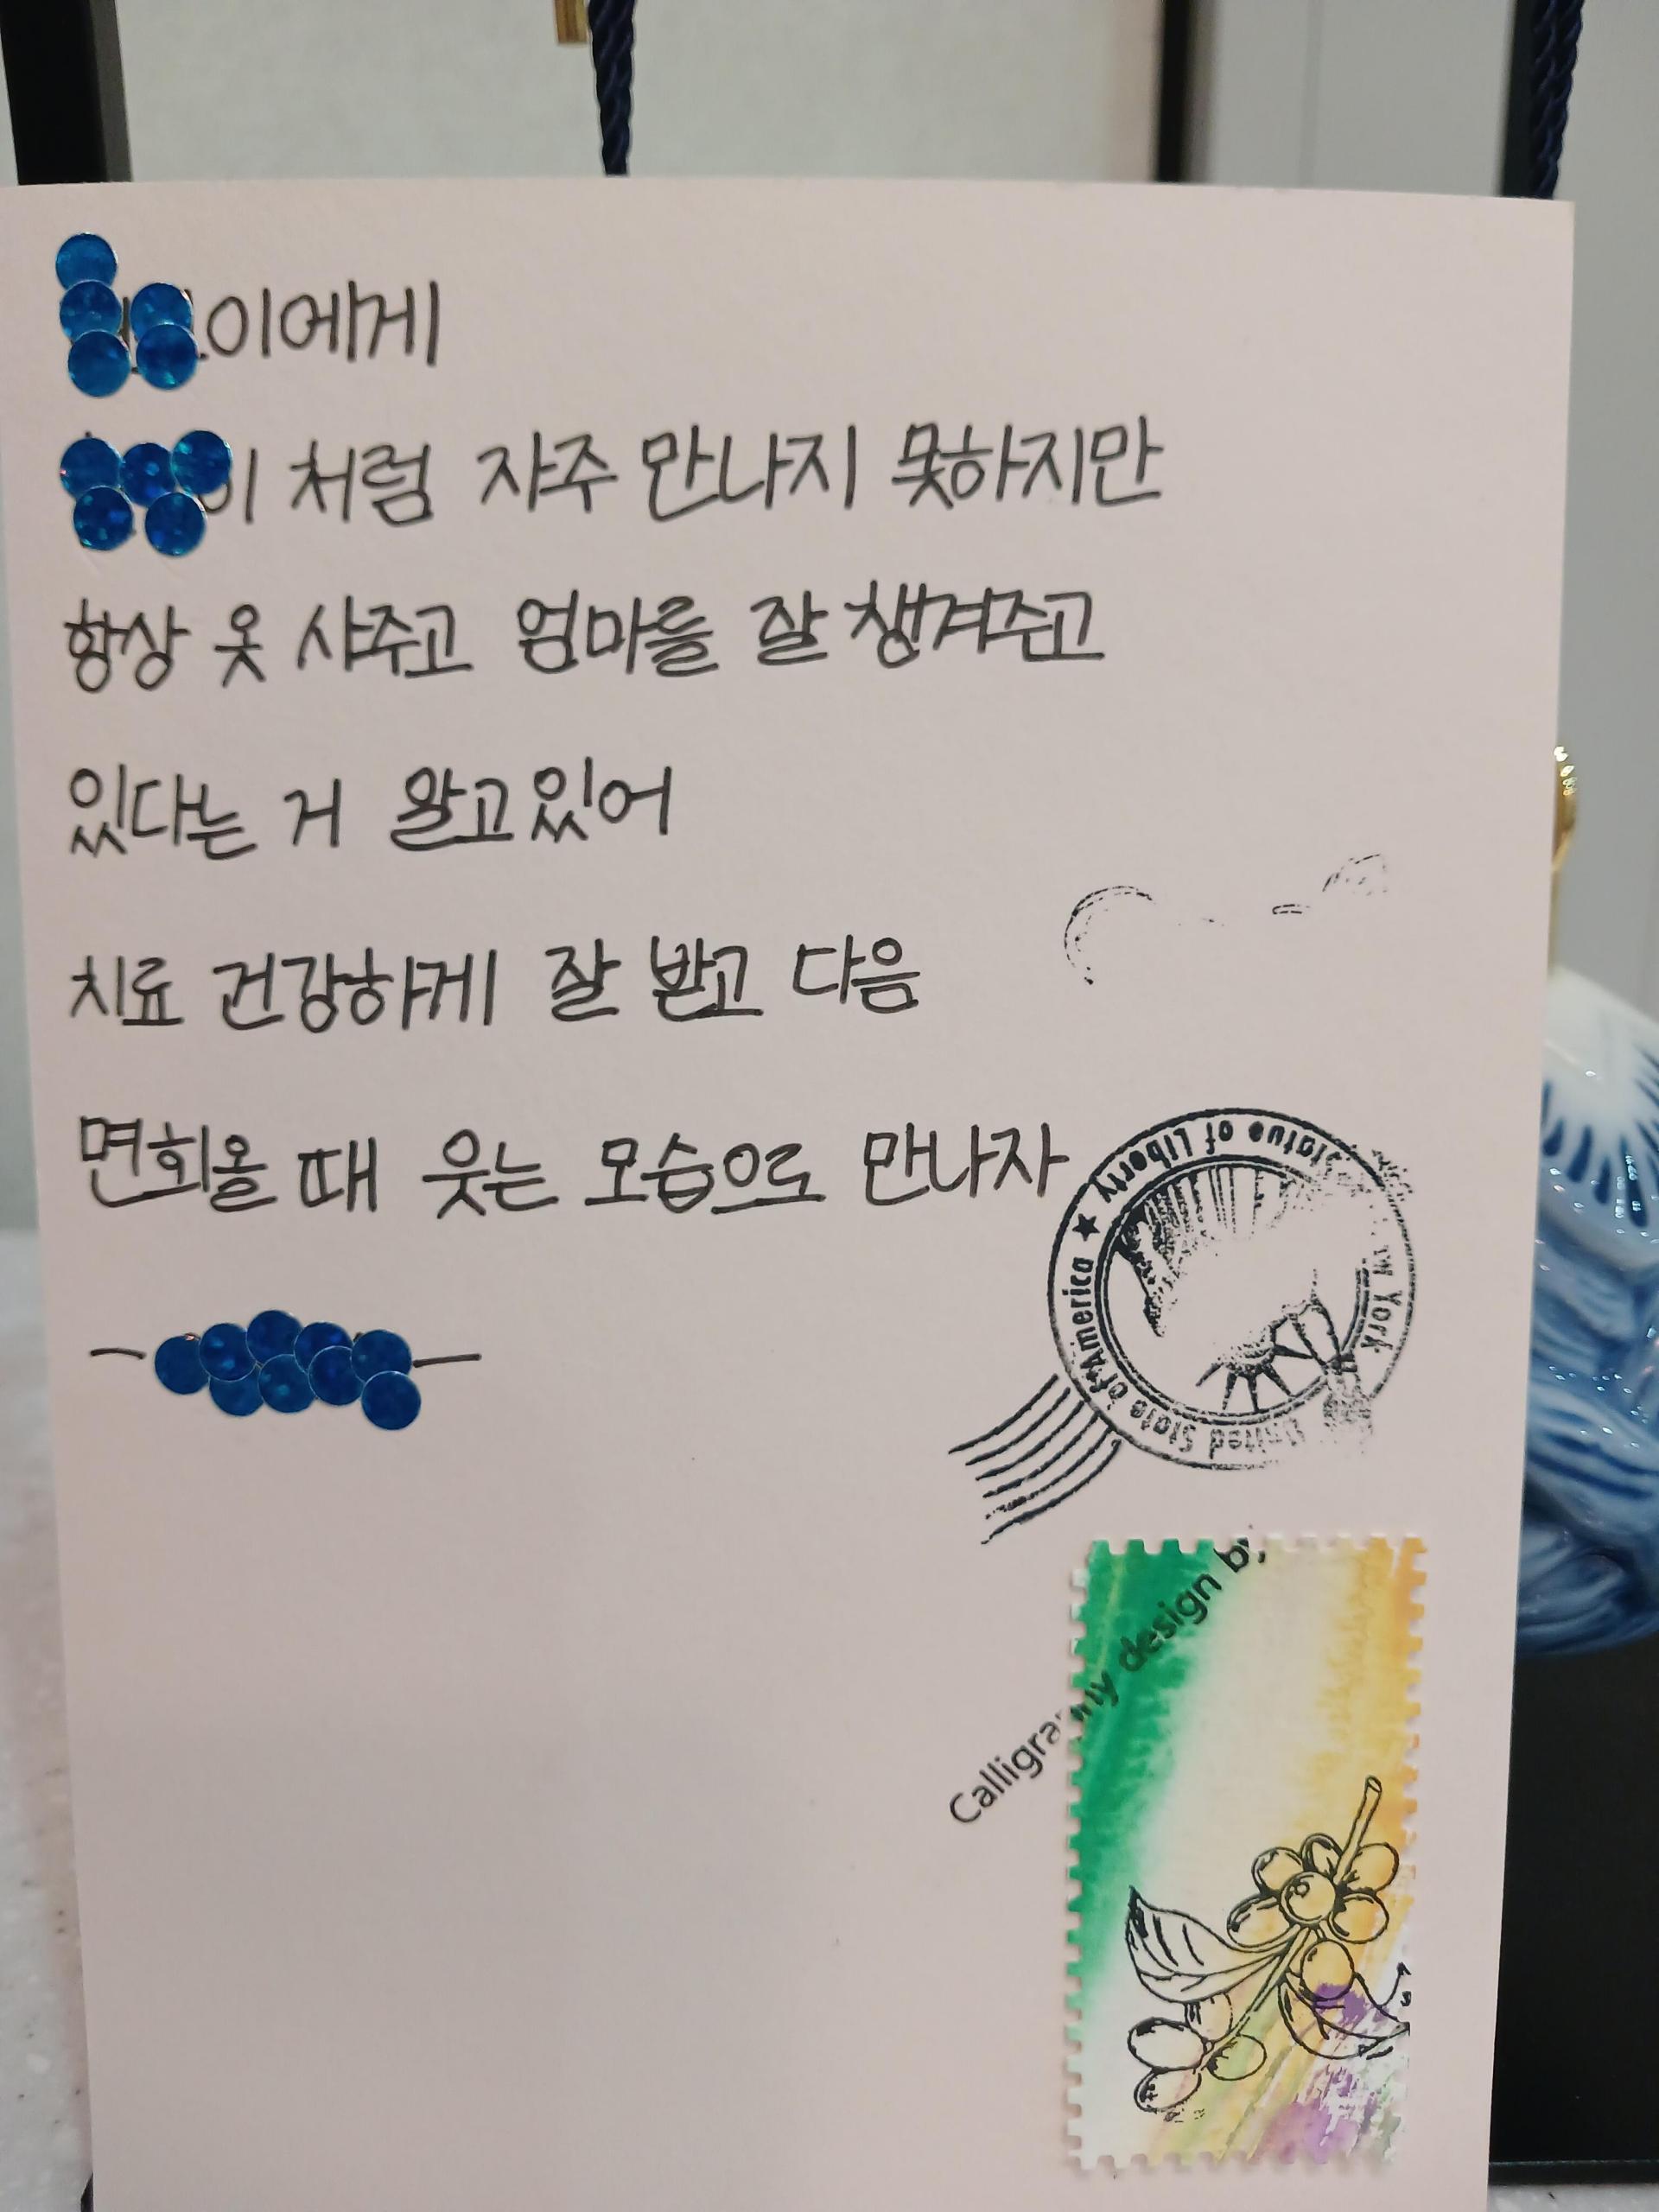 이에게
이 처럼 자주 만나지 못하지만
항상 옷 사주고 엄마를 잘 챙겨주고
있다는 거 알고있어
치료 건강하게 잘 받고 다음
면회올 때 웃는 모습으로 만나자
Statue of Liberty
York
United State of America
Calligraphy design by